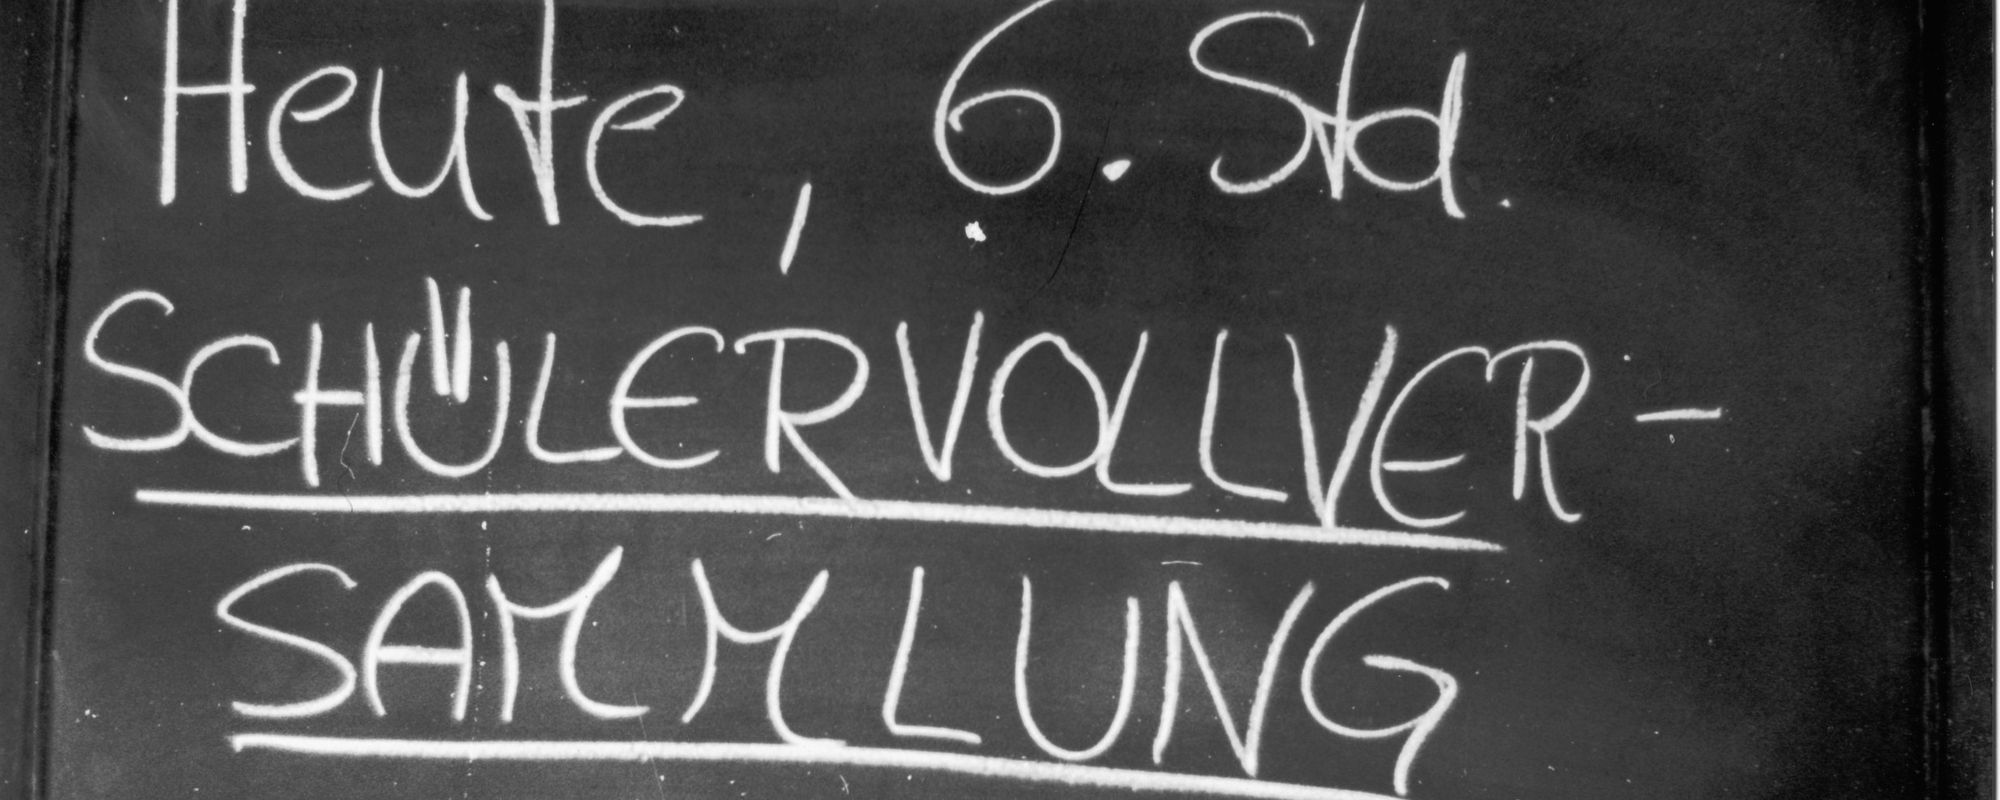 Heute, 6. Std.
SCHÜLERVOLLVER-
SAMMLUNG